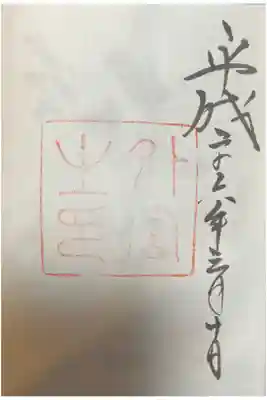 平成二十八年三月十日
外宮
之印